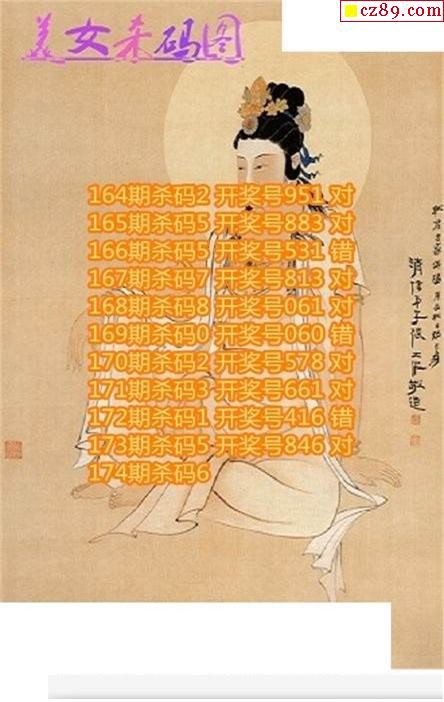 cz89.com
美女杀码图
164期杀码2 开奖号951 对
165期杀码5 开奖号883 对
166期杀码5 开奖号531 错
167期杀码7 开奖号813 对
168期杀码8 开奖号061 对
169期杀码0 开奖号060 错
170期杀码2 开奖号578 对
171期杀码3 开奖号661 对
172期杀码1 开奖号416 错
173期杀码5 开奖号846 对
174期杀码6